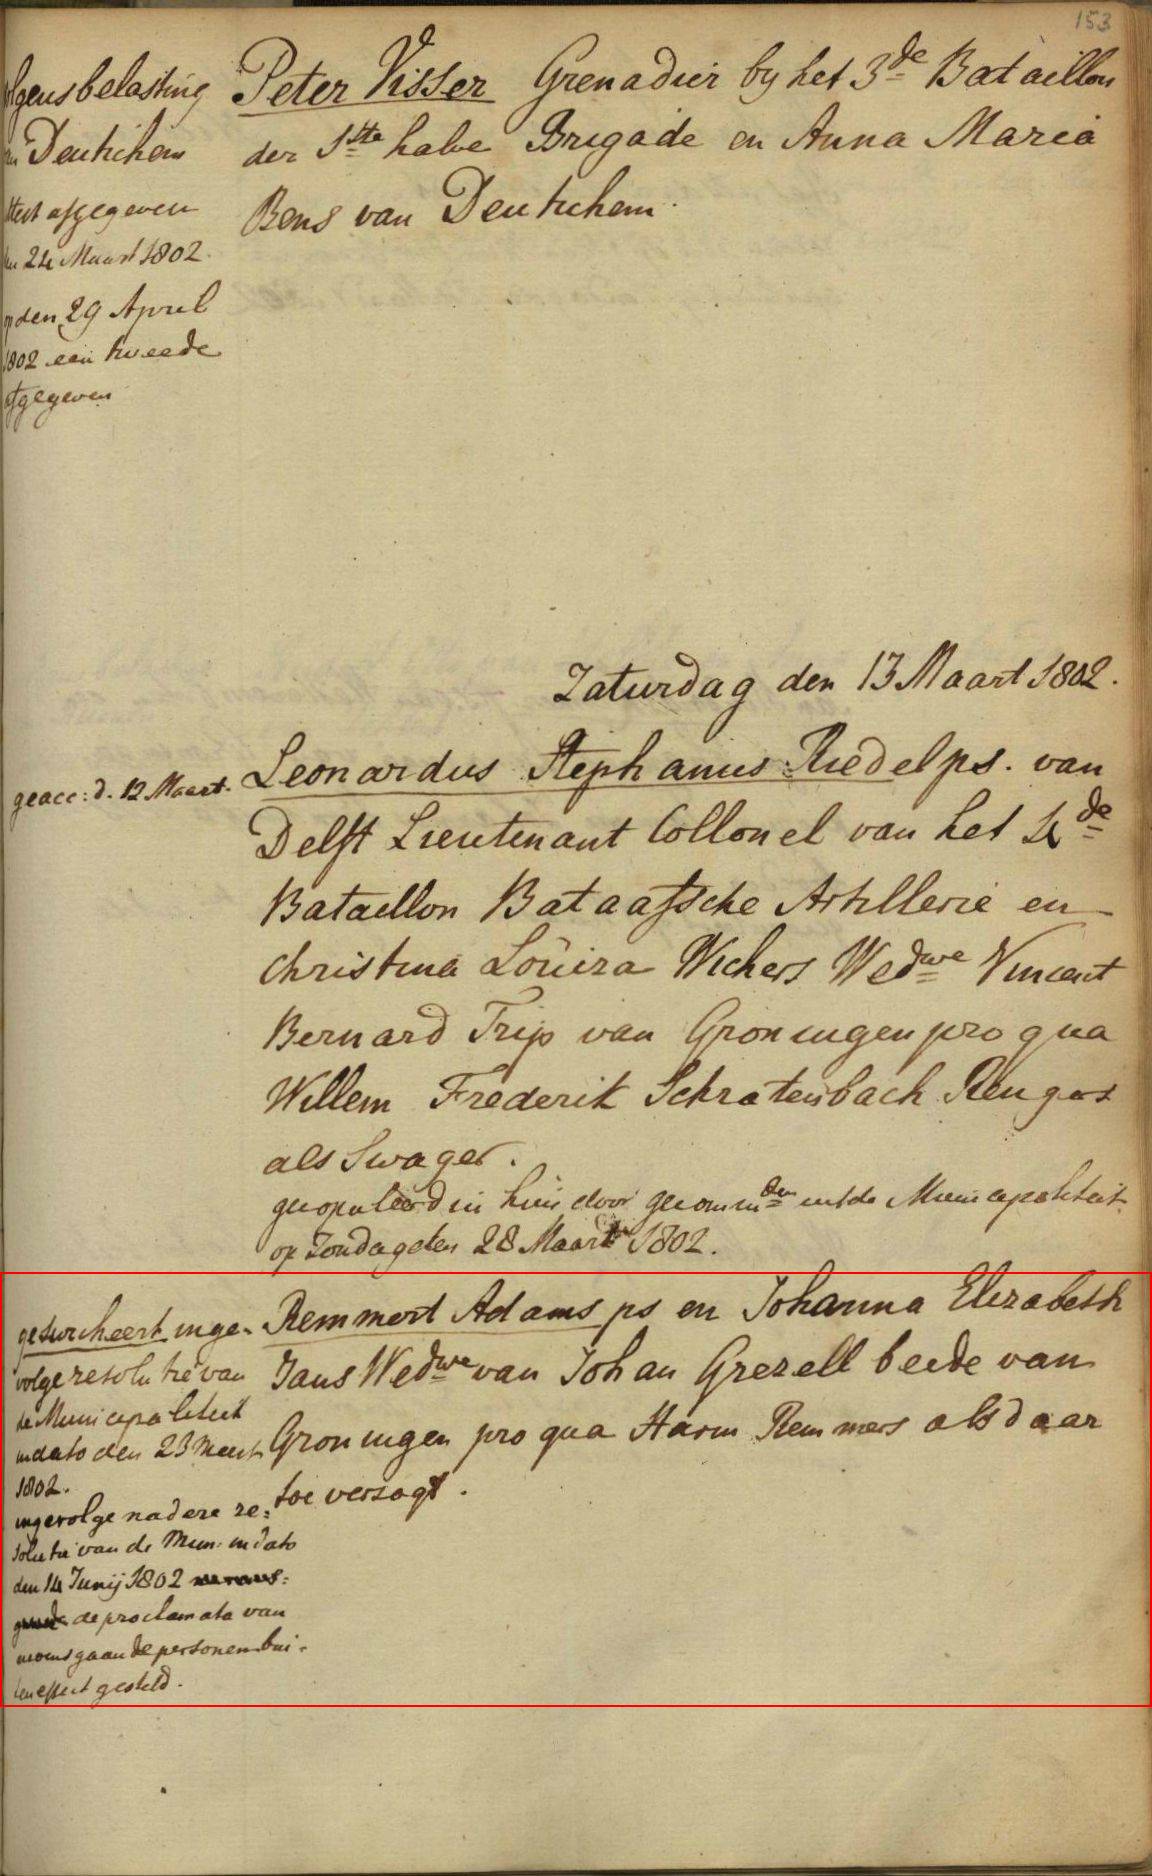 153
volgens belasting
van Deutichem
Attest afgegeven
den 24 Maart 1802.
op den 29 April
1802 een tweede
afgegeven
Peter Visser Grenadier by het 3de Bataillon
der 1ste halve Brigade en Anna Maria
Bens van Deutichem.
Zaturdag den 13 Maart 1802.
geacc: d. 12 Maart.
Leonardus Stephanus Riedel ps. van
Delft Lieutenant Collonel van het 4de
Bataillon Bataafsche Artillerie en
Christina Louiza Wichers Wedwe Vincent
Bernard Trip van Groningen pro qua
Willem Frederik Schratenbach Rengers
als Swager.
gecopuleerd in huis door gecommden uit de Municipaliteit
op Zondag den 28 Maart 1802.
gesurcheert inge-
volge resolutie van
de Municipaliteit
in dato den 23 Meert
1802.
ingevolge nadere re:
solutie van de Mun: in dato
den 14 Junij 1802
de proclamata van
nevensgaande personen bui-
ten effect gesteld.
Remmert Adams ps en Johanna Elizabeth
Jans Wedwe van Johan Grezell beede van
Groningen pro qua Harm Remmers als daar
toe versogt.